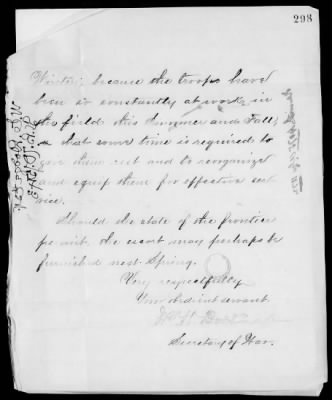 298
Winter; because the troops have
been so constantly at work in
the field this Summer and Fall,
that some time is required to
give them rest and to reorganize
and equip them for effective ser
vice.
Should the state of the frontier
permit, the escort may perhaps be
furnished next Spring.
Very respectfully
Your obedient servant
Secretary of War.